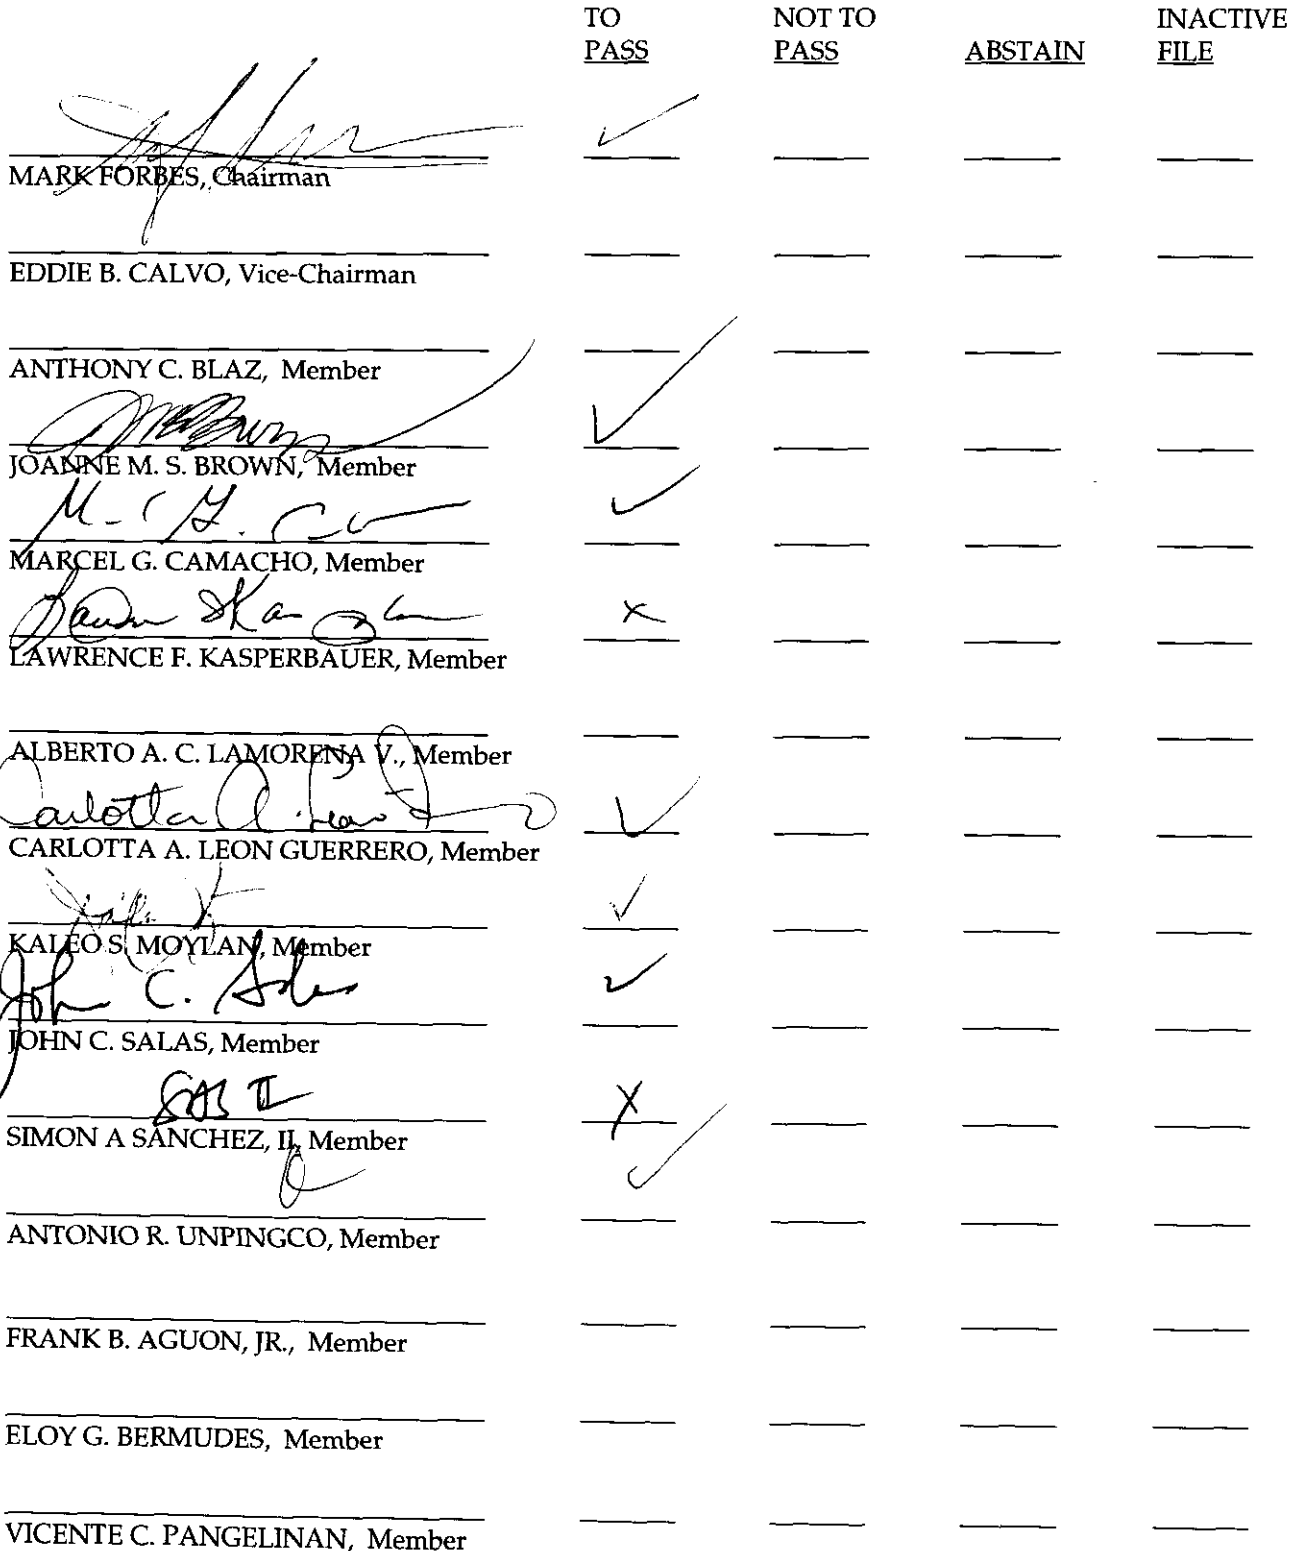 TO NOT TO INACTIVE
PASS PASS ABSTAIN FILE
✓
MARK FORBES, Chairman
EDDIE B. CALVO, Vice-Chairman
ANTHONY C. BLAZ, Member
JMSBrown ✓
JOANNE M. S. BROWN, Member
✓
MARCEL G. CAMACHO, Member
x
LAWRENCE F. KASPERBAUER, Member
ALBERTO A. C. LAMORENA V., Member
Carlotta A. Leon ✓
CARLOTTA A. LEON GUERRERO, Member
✓
KALEO S. MOYLAN, Member
John C. Salas ✓
JOHN C. SALAS, Member
SAS II X
SIMON A SANCHEZ, II, Member
✓
ANTONIO R. UNPINGCO, Member
FRANK B. AGUON, JR., Member
ELOY G. BERMUDES, Member
VICENTE C. PANGELINAN, Member